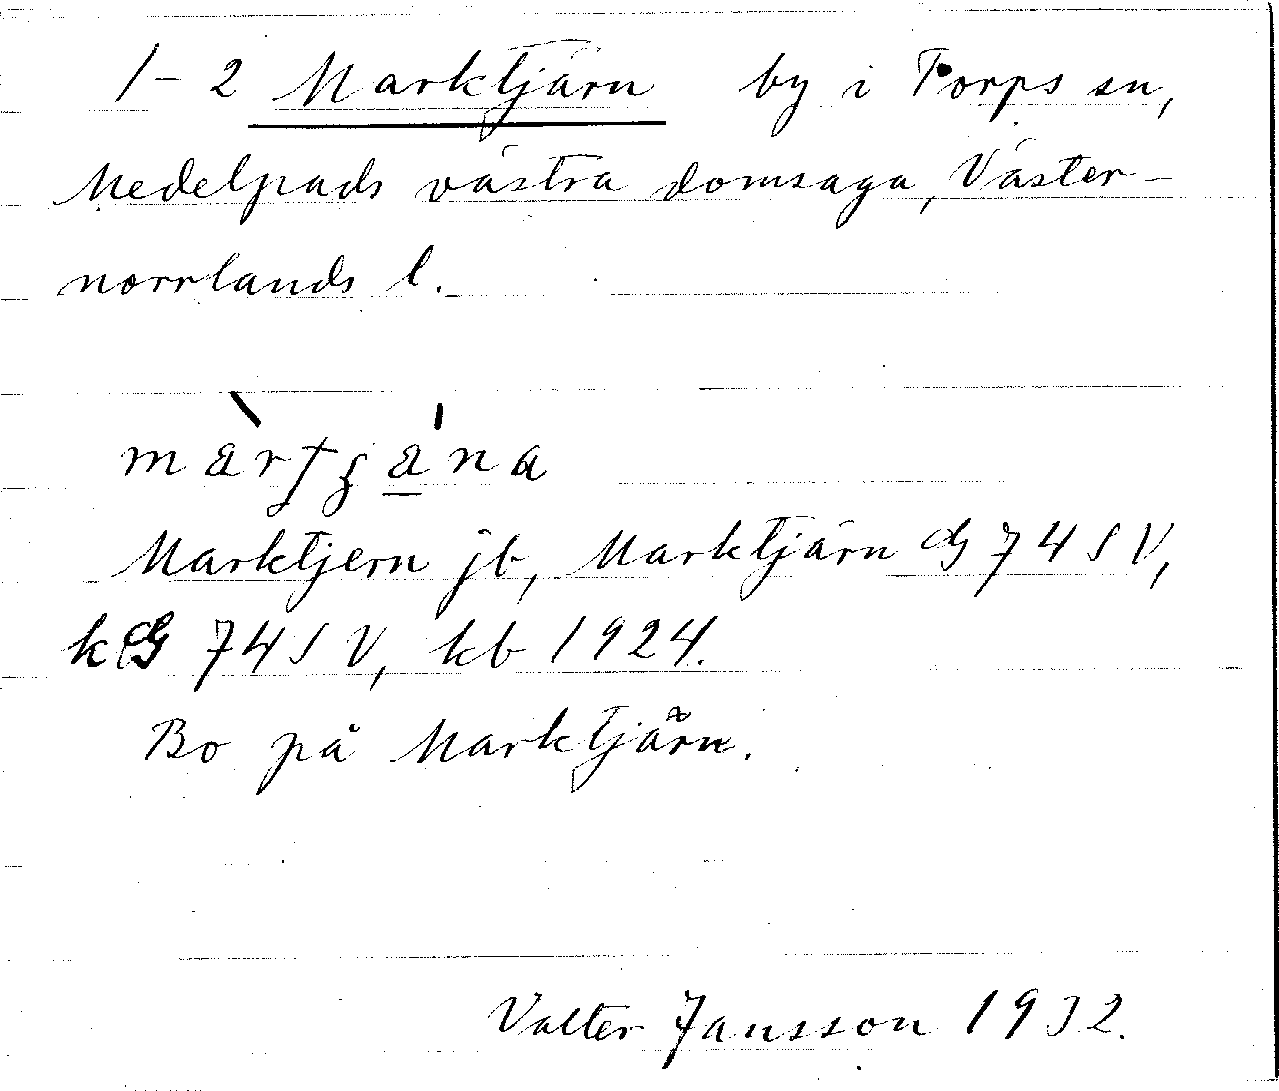 1-2 Marktjärn by i Torps sn,
Medelpads västra domsaga, Väster-
norrlands l.
Marktjern jb, Marktjärn G 74 SV,
kG 74 SV, kb 1924.
Bo på Marktjärn.
Valter Jansson 1932.